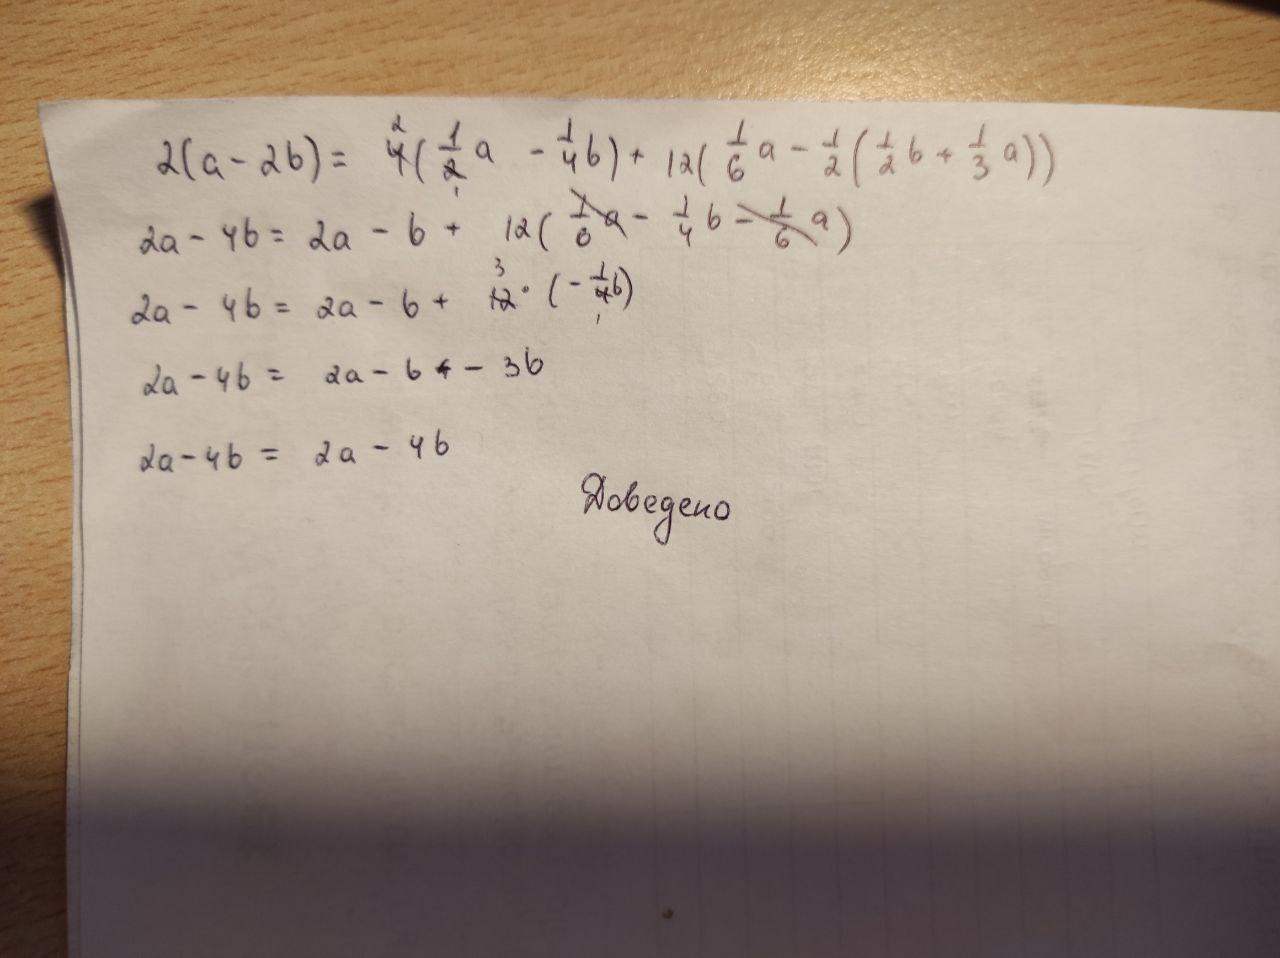 2(a - 2b) = 4 2 (1/2 1 a - 1/4 b) + 12(1/6 a - 1/2 (1/2 b + 1/3 a))
2a - 4b = 2a - b + 12(1/6 a - 1/4 b - 1/6 a)
2a - 4b = 2a - b + 12 3 · (- 1/4 1 b)
2a - 4b = 2a - b - 3b
2a - 4b = 2a - 4b
Доведено